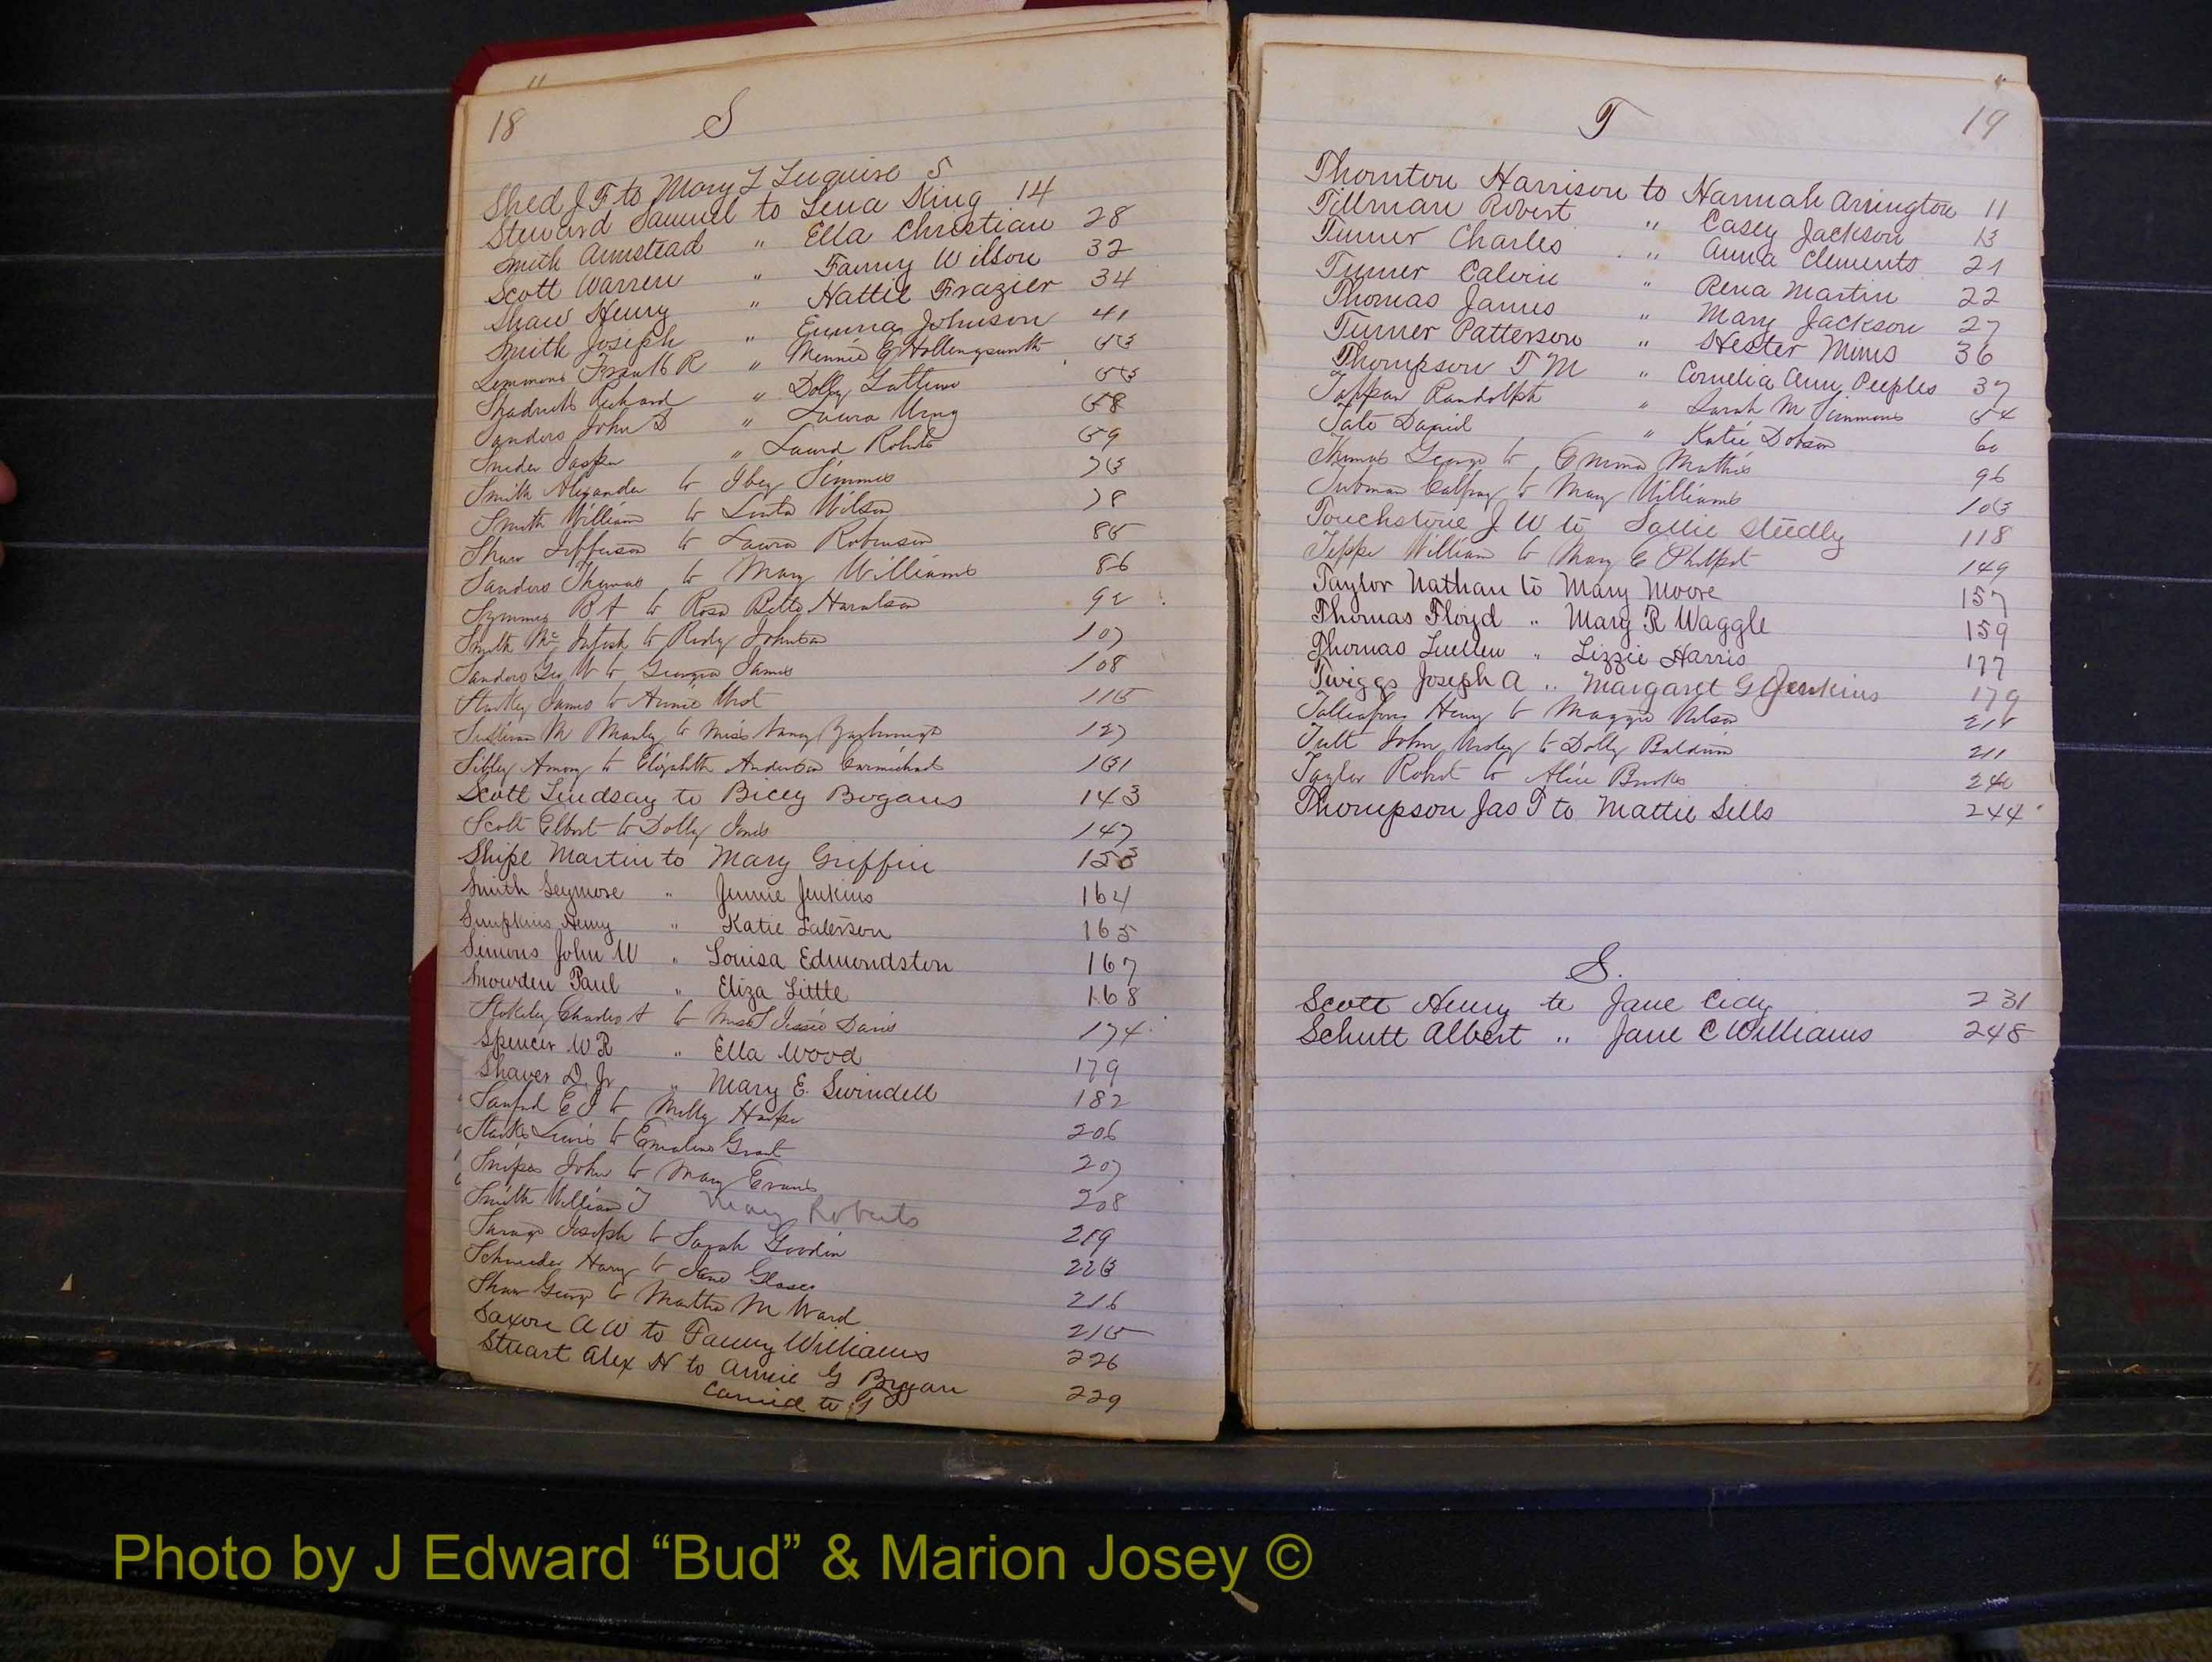 18
S
Shed J F to Mary L 5
Steward Samuel to Lena King 14
Smith Armstead " Ella Christian 28
Scott Warren " Fanny Wilson 32
Shaw Henry " Hattie Frazier 34
Smith Joseph " Emma Johnson 41
Semmons Frank R " Minnie G Hollingsworth 53
Shadrick Richard " Dolly 55
Sanders John D " Laura 58
Snider Jasper " Laura Roberts 59
Smith Alexander to Ibey Simmes 75
Smith William to Wilson 78
Shaw Jefferson to Laura Robinson 85
Sanders Thomas to Mary Williams 86
Symmes B A to Rosa Belle Haralson 92
Smith to Johnson 107
Sanders Geo W to Georgia James 108
Starkey James to Annie West 115
Sullivan M Manly to Miss Nancy Yarbrough 127
Sibley Amory to Elizabeth Anderson Carmichael 131
Scott Lindsay to Bicey Bogans 143
Scott Elbert to Dolly Jones 147
Shipe Martin to Mary Griffin 153
Smith Seymore " Jennie Jenkins 164
Simpkins Henry " Katie Laterson 165
Simons John W " Louisa Edmondston 167
Snowden Paul " Eliza Little 168
Stokeley Charles A to Miss Jessie Davis 174
Spencer W R " Ella Wood 179
Shaver D. Jr " Mary E. Swindell 182
Sanford E J to Milly Harper 206
Starks Lewis to Emaline Grant 207
Snipes John to Mary Evans 208
Smith William T Mary Roberts 219
Savage Joseph to Sarah Goodin 223
Schneider Harry to Jane Glaser 216
Shaw George to Martha M Ward 215
Saxon A W to Fanny Williams 226
Stuart Alex H to Annie G Bryan 229
Carried to T
19
T
Thornton Harrison to Hannah Arrington 11
Tillman Robert " Casey Jackson 13
Turner Charles " Anna Clements 21
Turner Calvin " Rena Martin 22
Thomas James " Mary Jackson 27
Turner Patterson " Hester Mims 36
Thompson T M " Cornelia Ann Peeples 37
Tappan Randolph " Sarah M Timmons 54
Tate David " Katie Dobson 60
Thomas George to Emma Mathis 96
Tubman to Mary Williams 103
Touchstone J. W to Sallie Steedly 118
Teppe William to Mary E Philpot 149
Taylor Nathan to Mary Moore 157
Thomas Floyd " Mary R Waggle 159
Thomas Luellen " Lizzie Harris 177
Twiggs Joseph A " Margaret G Jenkins 179
Taliaferro Henry to Maggie Nelson
Tutt John Wesley to Dolly Baldwin 211
Taylor Robert to Alice Brooks 240
Thompson Jas T to Mattie Sells 244
S.
Scott Henry to Jane Cidy 231
Schutt Albert " Jane C Williams 248
Photo by J Edward “Bud” & Marion Josey ©